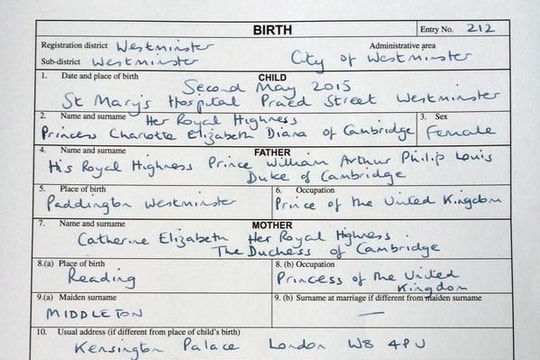 BIRTH
Entry No. 212
Registration district Westminster
Administrative area
Sub-district Westminster
City of Westminster
1. Date and place of birth
CHILD
Second May 2015
St Mary's Hospital Praed Street Westminster
2. Name and surname Her Royal Highness
Princess Charlotte Elizabeth Diana of Cambridge
3. Sex
Female
4. Name and surname
FATHER
His Royal Highness Prince William Arthur Philip Louis
Duke of Cambridge
5. Place of birth
Paddington Westminster
6. Occupation
Prince of the United Kingdom
7. Name and surname
MOTHER
Catherine Elizabeth Her Royal Highness
The Duchess of Cambridge
8.(a) Place of birth
Reading
8. (b) Occupation
Princess of the United
Kingdom
9.(a) Maiden surname
MIDDLETON
9. (b) Surname at marriage if different from maiden surname
—
10. Usual address (if different from place of child's birth)
Kensington Palace London W8 4PU